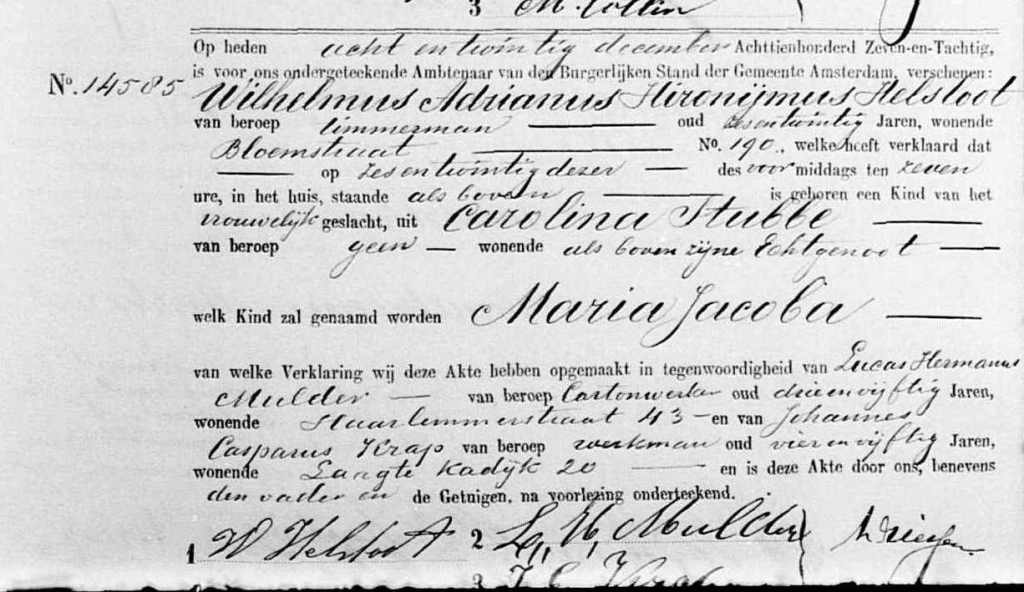 3 M. Collin
Op heden acht en twintig december Achttienhonderd Zeven-en-Tachtig,
No. 14585 is voor ons ondergeteekende Ambtenaar van den Burgerlijken Stand der Gemeente Amsterdam, verschenen:
Wilhelmus Adrianus Hironijmus Helsloot
van beroep timmerman oud zesentwintig Jaren, wonende
Bloemstraat No. 190, welke heeft verklaard dat
op zesentwintig dezer des voormiddags ten zeven
ure, in het huis, staande als boven is geboren een Kind van het
vrouwelijk geslacht, uit Carolina Stubbe
van beroep geen wonende als boven zijne Echtgenoot
welk Kind zal genaamd worden Maria Jacoba
van welke Verklaring wij deze Akte hebben opgemaakt in tegenwoordigheid van Lucas Hermanus
Mulder van beroep Cartonwerker oud drieenvijftig Jaren,
wonende Haarlemmerstraat 43 en van Johannes
Casparus Krap van beroep werkman oud vierenvijftig Jaren,
wonende Laagte Kadijk 20 en is deze Akte door ons, benevens
den vader en de Getuigen, na voorlezing onderteekend.
1 W Helsloot 2 L. H. Mulder
3 J. C. Krap